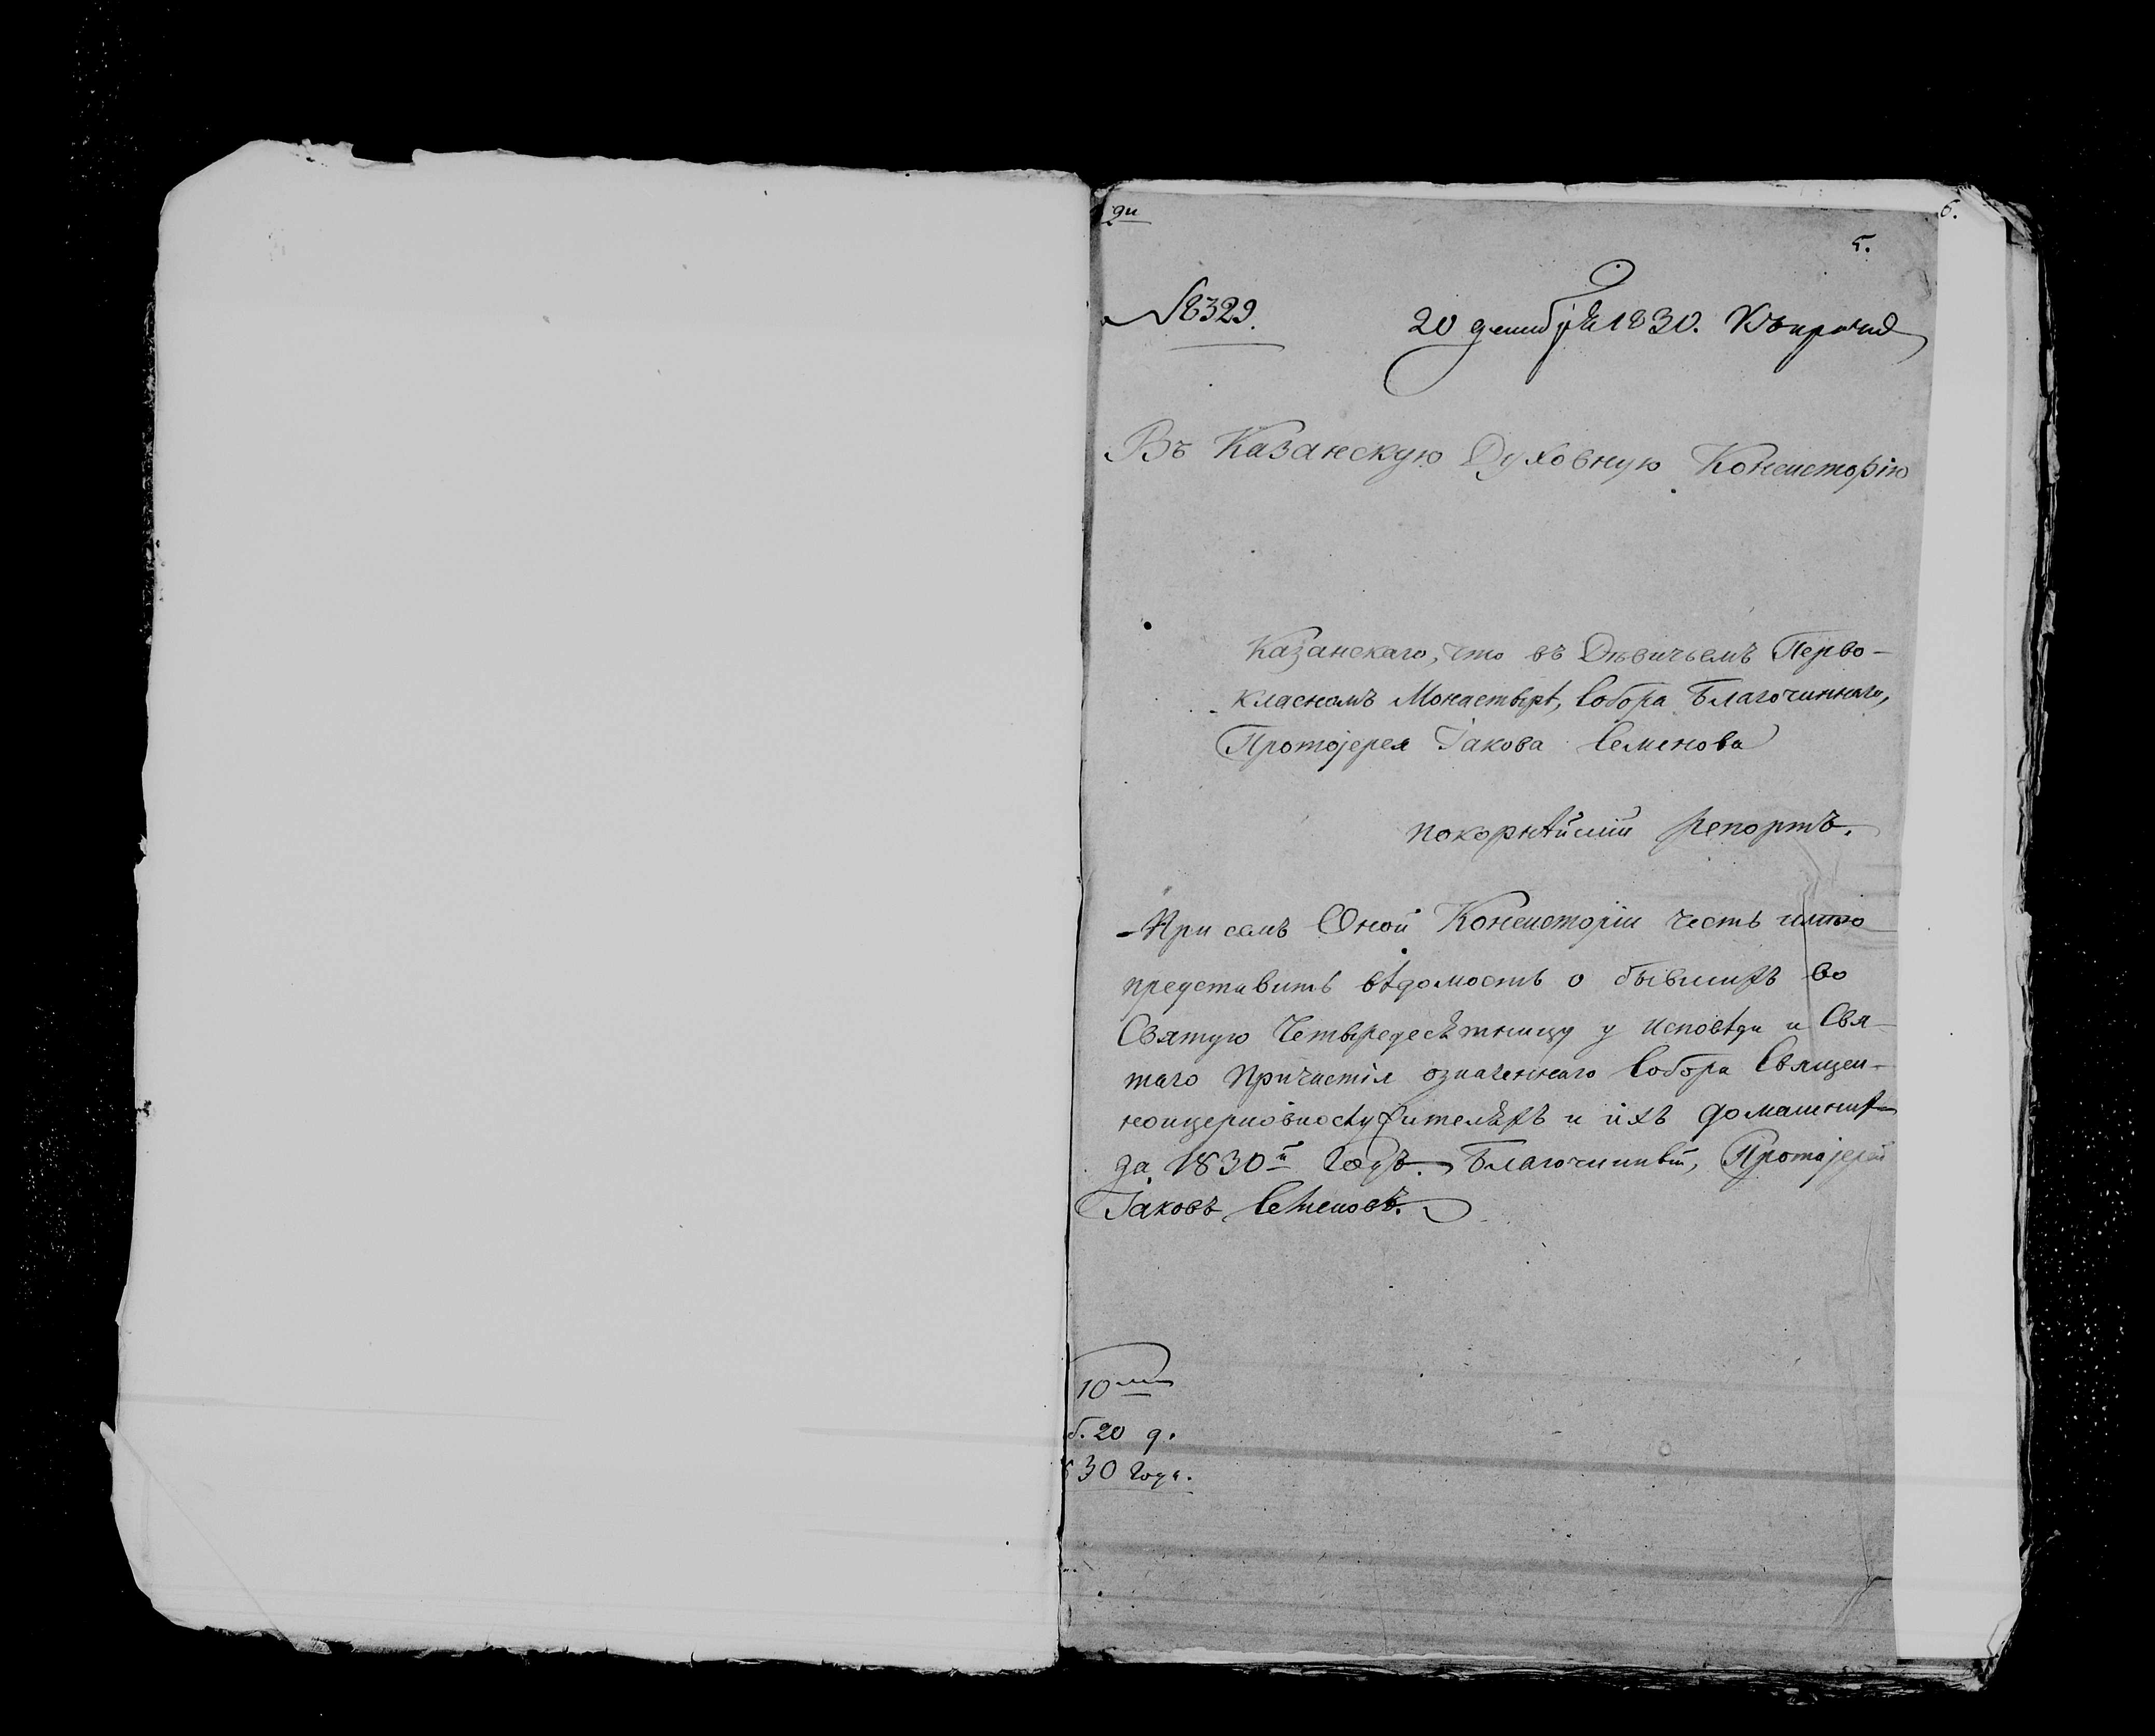 5.
6.
№ 8329.
20 декабря 1830. Къ прочимъ
Въ Казанскую Духовную Консисторію
Казанскаго, что въ Дѣвичьемъ Перво-
класномъ Монастырѣ, Собора Благочиннаго,
Протоjерея Іакова Семенова
покорнѣйшій репортъ.
При семъ Оной Консисторіи честь имѣю
представить вѣдомость о бывшихъ во
Святую Четыредесѣтницу у исповѣди и Свя-
таго Причастія означеннаго Собора Священ-
ноцерковнослужителѣхъ и ихъ домашнихъ
за 1830й Годъ. Благочинный, Протоjерей
Іаковъ Семеновъ.
10
б. 20 д.
30 Года.